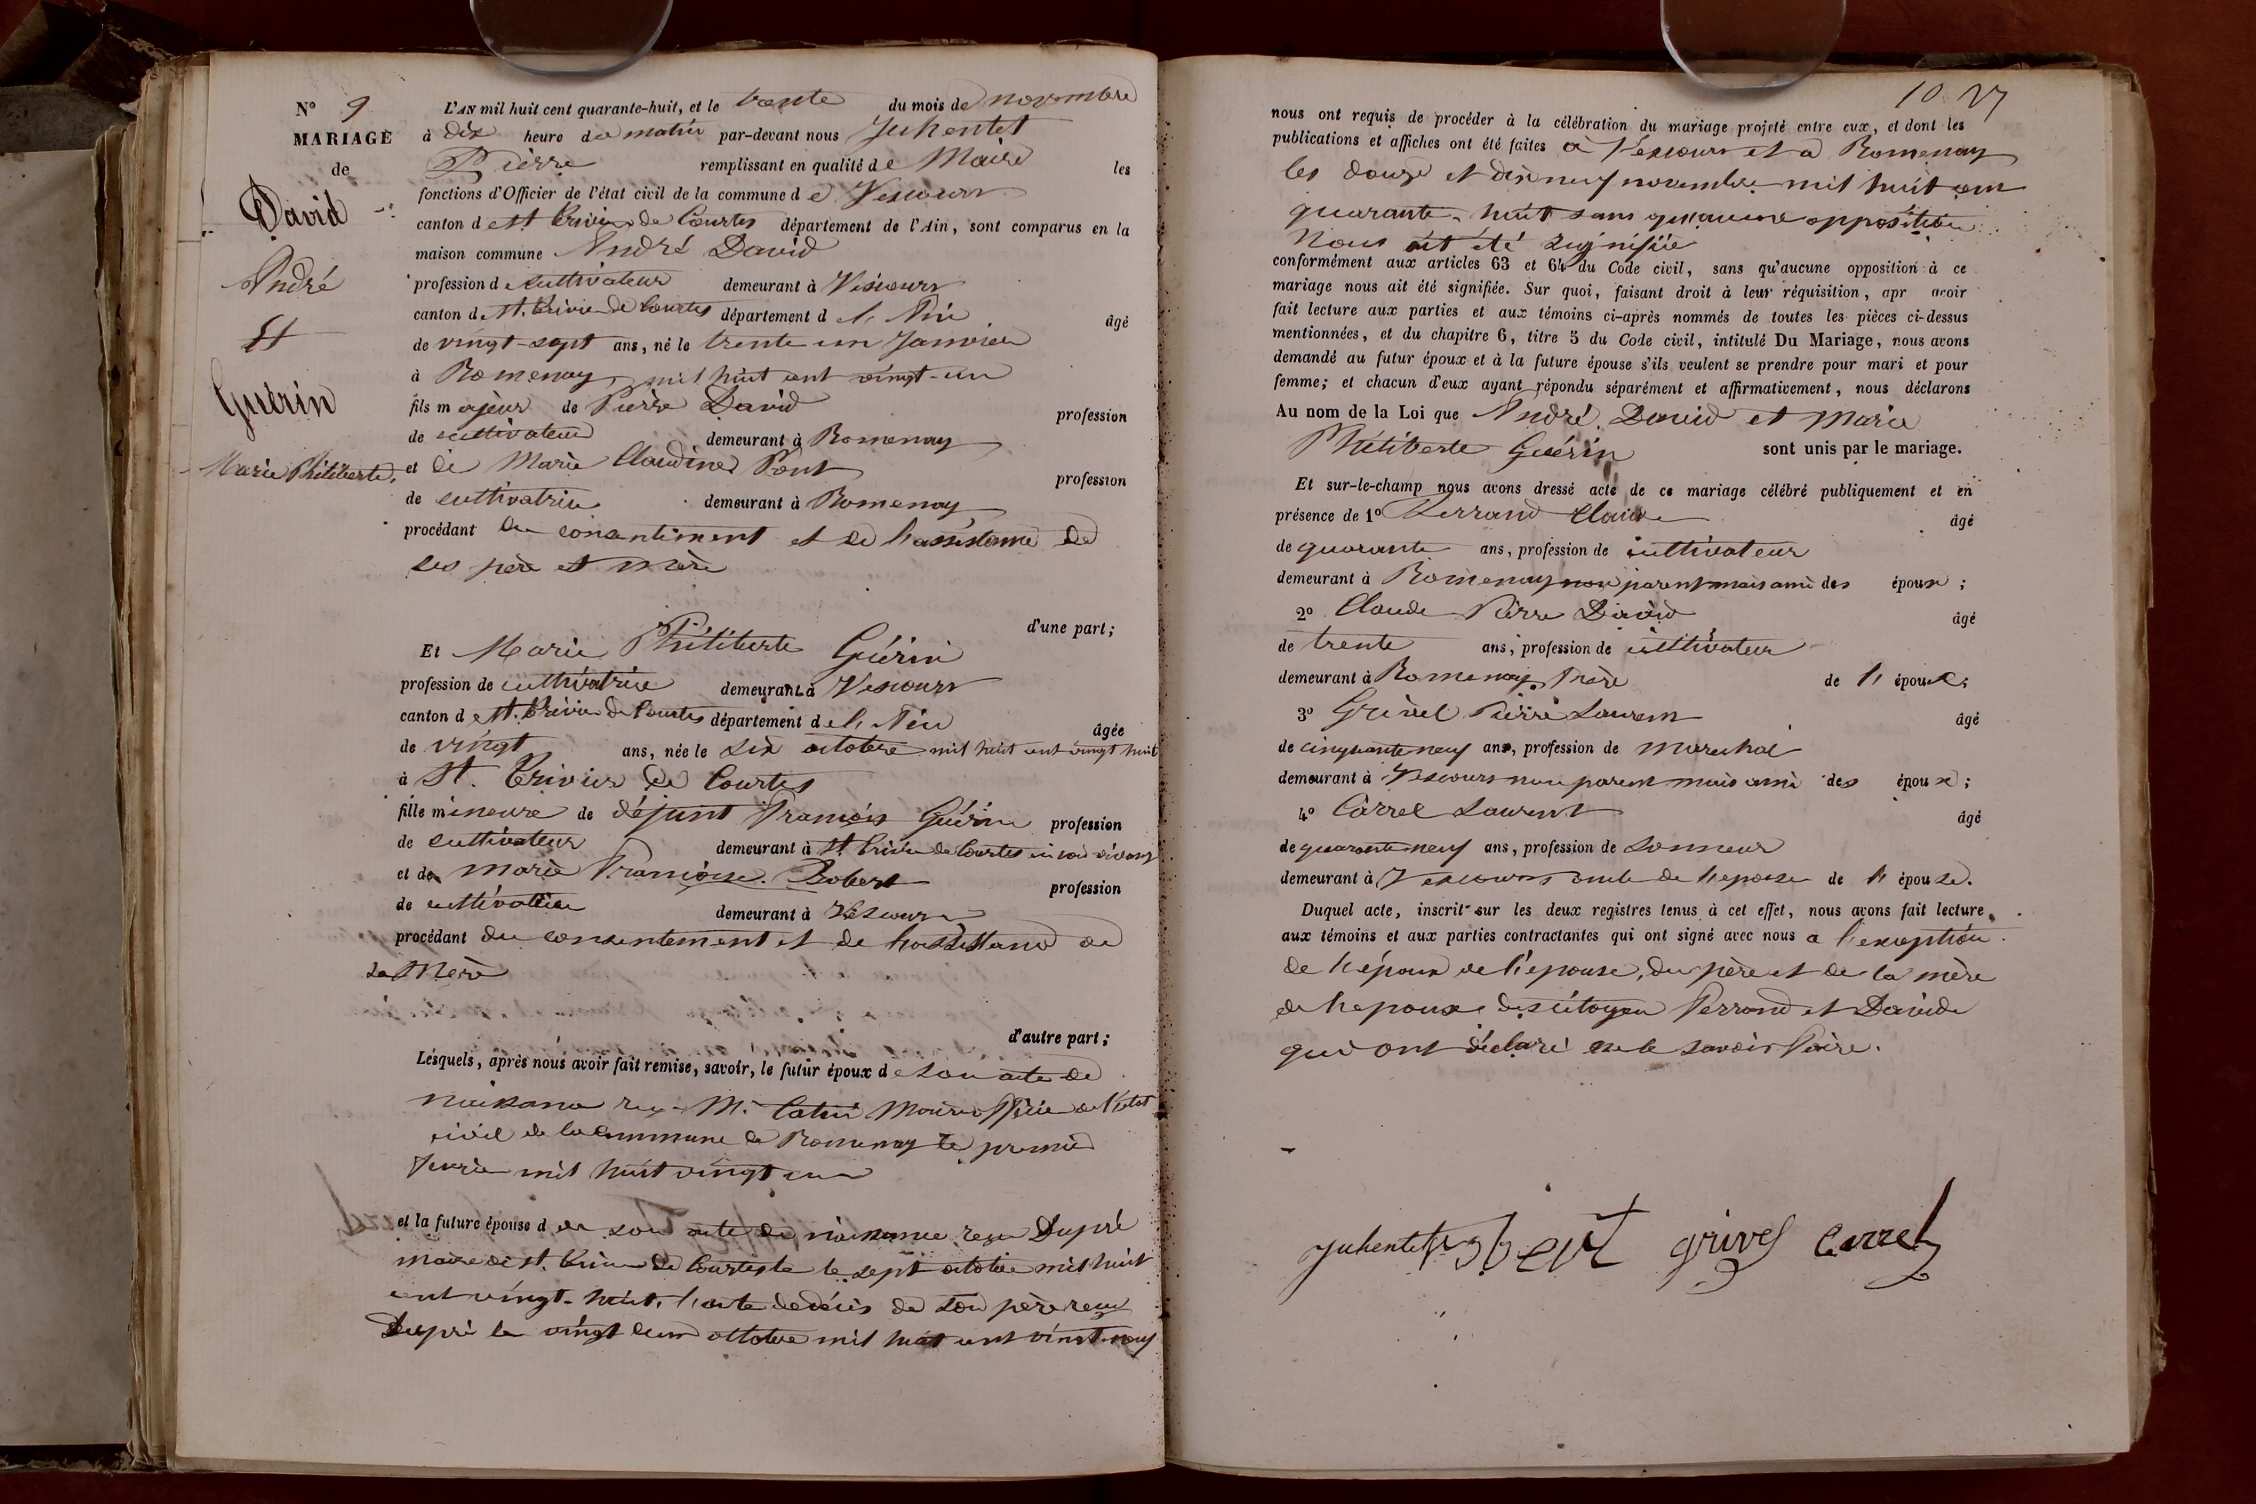 N° 9
MARIAGE
de
David
André
Et
Guérin
Marie Philiberte
L'AN mil huit cent quarante-huit, et le trente du mois de novembre
à dix heure du matin par-devant nous Juhentet
Pierre remplissant en qualité de Maire les
fonctions d'Officier de l'état civil de la commune de Vescours
canton de St Trivier de Courtes département de l'Ain, sont comparus en la
maison commune André David
profession de cultivateur demeurant à Vescours
canton de St. Trivier de Courtes département de l'Ain âgé
de vingt-sept ans, né le trente un Janvier
à Romenay mil huit cent vingt-un
fils majeur de Pierre David profession
de cultivateur demeurant à Romenay
et de Marie Claudine Pont profession
de cultivatrice demeurant à Romenay
procédant du consentiment et de l'assistance de
ses père et mère
d'une part;
Et Marie Philiberte Guérin
profession de cultivatrice demeurant à Vescours
canton de St. Trivier de Courtes département de l'Ain âgée
de vingt ans, née le six octobre mil huit cent vingt huit
à St. Trivier de Courtes
fille mineure de défunt François Guérin profession
de cultivateur demeurant à St Trivier de Courtes en son vivant
et de Marie Françoise Robert profession
de cultivatrice demeurant à Vescours
procédant du consentement et de l'assistance de
sa Mère
d'autre part;
Lesquels, après nous avoir fait remise, savoir, le futur époux de son acte de
naissance reçu M. Maire officier de l'état
civil de la commune de Romenay le premier
fevrier mil huit vingt un
et la future épouse d de son acte de naissance reçu Dupré
maire de St. Trivier de Courtes le le sept octobre mil huit
cent vingt-huit, l'acte de décès de son père reçu
Dupré le vingt deux octobre mil huit cent vingt-neuf
10 27
nous ont requis de procéder à la célébration du mariage projeté entre eux, et dont les
publications et affiches ont été faites à Vescours et a Romenay
les douze et dix neuf novembre mil huit cent
quarante-huit sans qu'aucune opposition
Nous ait été signifiée
conformément aux articles 63 et 64 du Code civil, sans qu'aucune opposition à ce
mariage nous ait été signifiée. Sur quoi, faisant droit à leur réquisition, apr avoir
fait lecture aux parties et aux témoins ci-après nommés de toutes les pièces ci-dessus
mentionnées, et du chapitre 6, titre 5 du Code civil, intitulé Du Mariage, nous avons
demandé au futur époux et à la future épouse s'ils veulent se prendre pour mari et pour
femme; et chacun d'eux ayant répondu séparément et affirmativement, nous déclarons
Au nom de la Loi que André David et Marie
Philiberte Guérin sont unis par le mariage.
Et sur-le-champ nous avons dressé acte de ce mariage célébré publiquement et en
présence de 1° Perrand Claude âgé
de quarante ans, profession de cultivateur
demeurant à Romenay non parent mais ami des époux;
2° Claude Pierre David âgé
de trente ans, profession de cultivateur
demeurant à Romenay frère de l'époux;
3° Grivel Pierre Laurent âgé
de cinquante neuf ans, profession de marechal
demeurant à Vescours non parent mais ami des époux;
4° Carrel Laurent âgé
de quarante neuf ans, profession de sonneur
demeurant à Vescours oncle de l'epouse de l'épouse.
Duquel acte, inscrit sur les deux registres tenus à cet effet, nous avons fait lecture
aux témoins et aux parties contractantes qui ont signé avec nous a l'exception
de l'époux de l'épouse, du père et de la mère
de l'epoux des citoyen Perrand et David
qui ont déclaré ne le savoir faire.
Juhentet grivel carrel